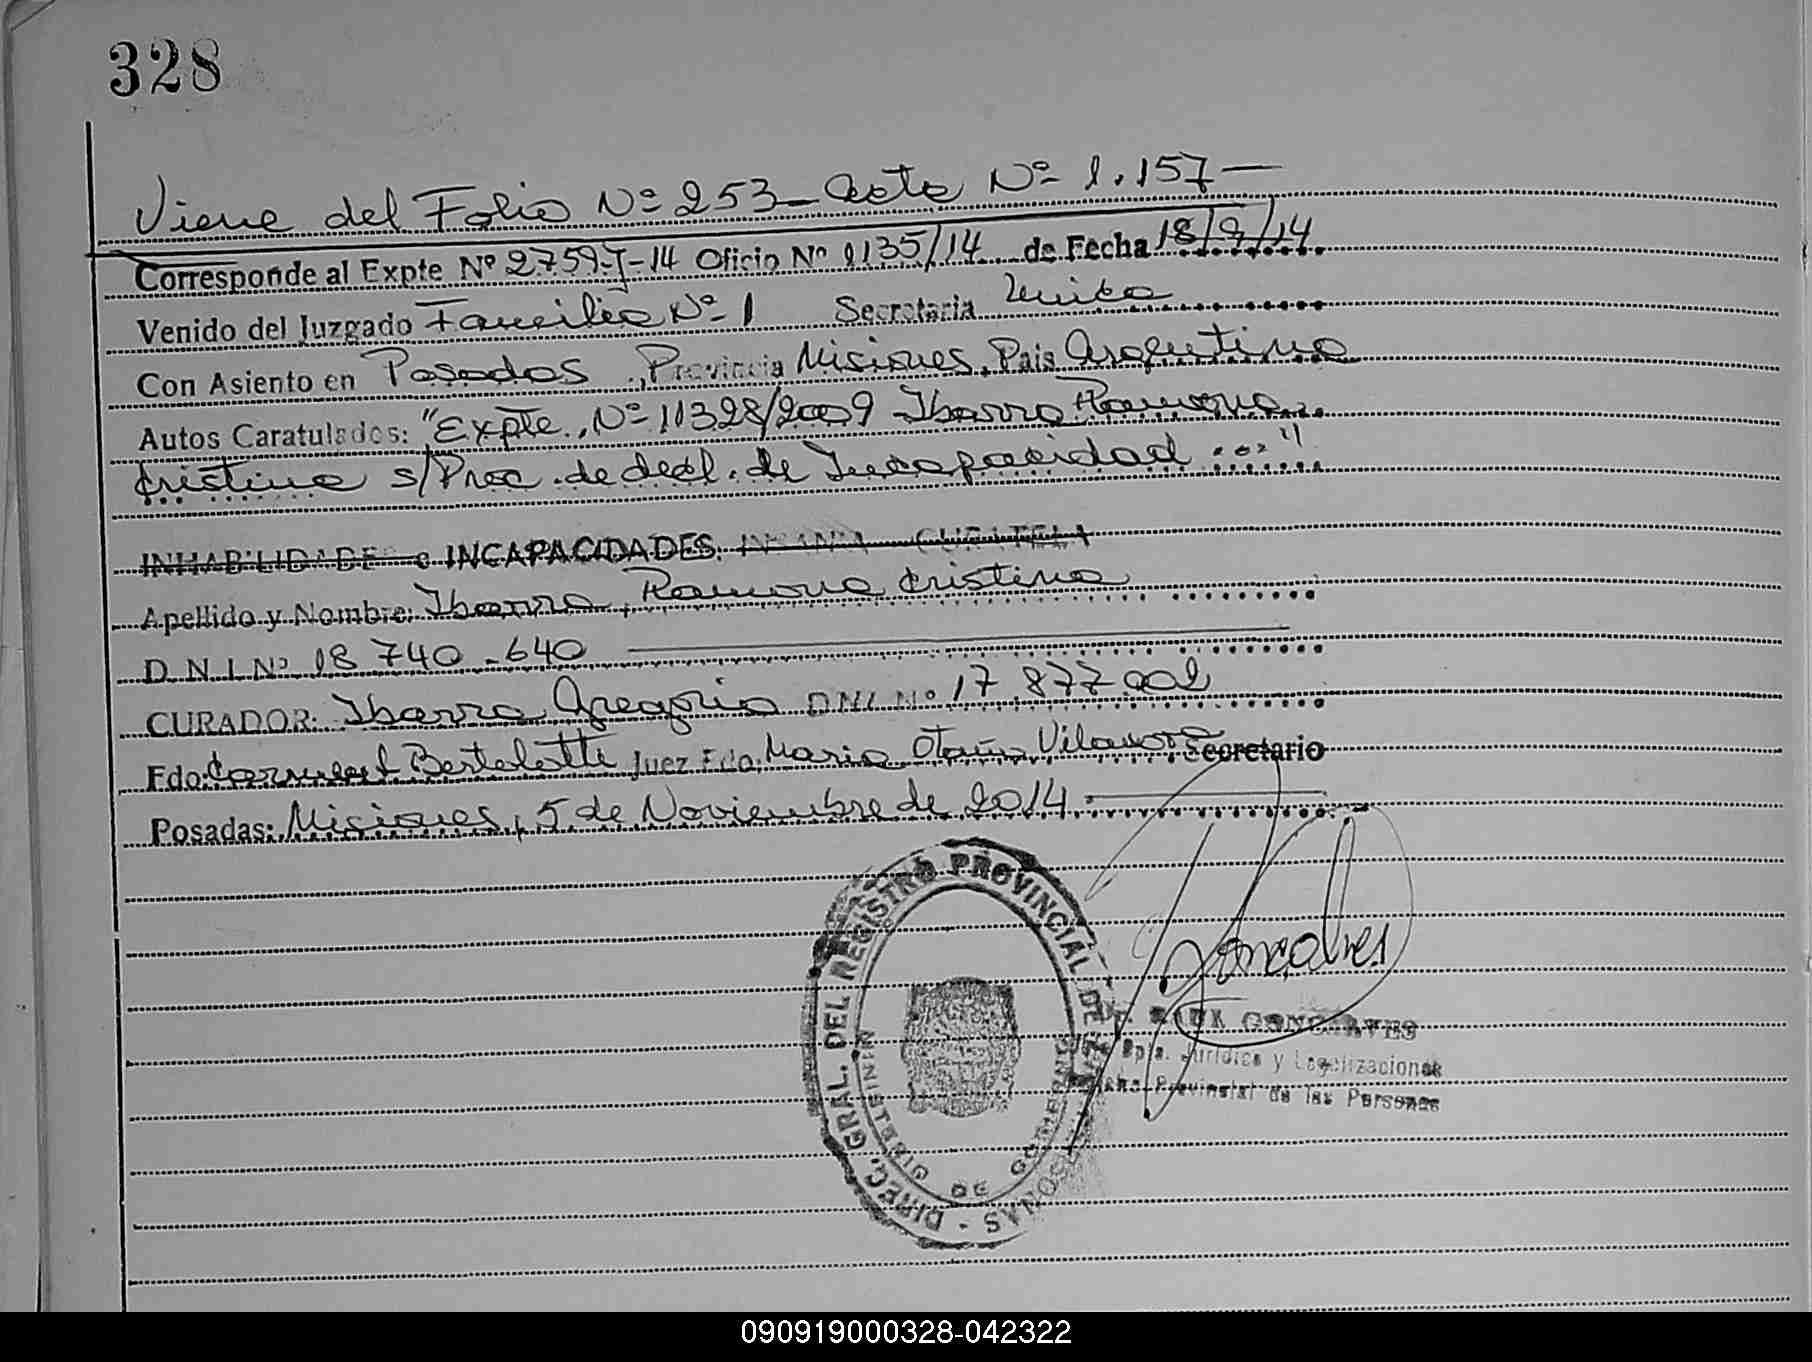 328
Viene del Folio Nº 253 - Acta Nº 1.157 -
Corresponde al Expte Nº 2759-J-14 Oficio Nº 1135/14 de Fecha 18/9/14
Venido del Juzgado Familia Nº 1 Secretaria Unica
Con Asiento en Posadas, Provincia Misiones, Pais Argentina
Autos Caratulados: "Expte. Nº 11328/2009 Ibarra Ramona
Cristina s/Proc. de decl. de Incapacidad ..."
INHABILIDADES e INCAPACIDADES. INSANIA CURATELA
Apellido y Nombre: Ibarra, Ramona Cristina
D.N.I Nº 18 740.640
CURADOR: Ibarra Gregorio DNI Nº 17 877 001
Fdo: Bertolotti Juez Fdo. Maria Secretario
Posadas: Misiones, 5 de Noviembre de 2014
DIREC. GRAL. DEL REGISTRO PROVINCIAL DE
PERSONAS - DE GOBIERNO
Goncalves
GONCALVES
Dpto. Jurídico y Legalizaciones
Provincial de las Personas
090919000328-042322